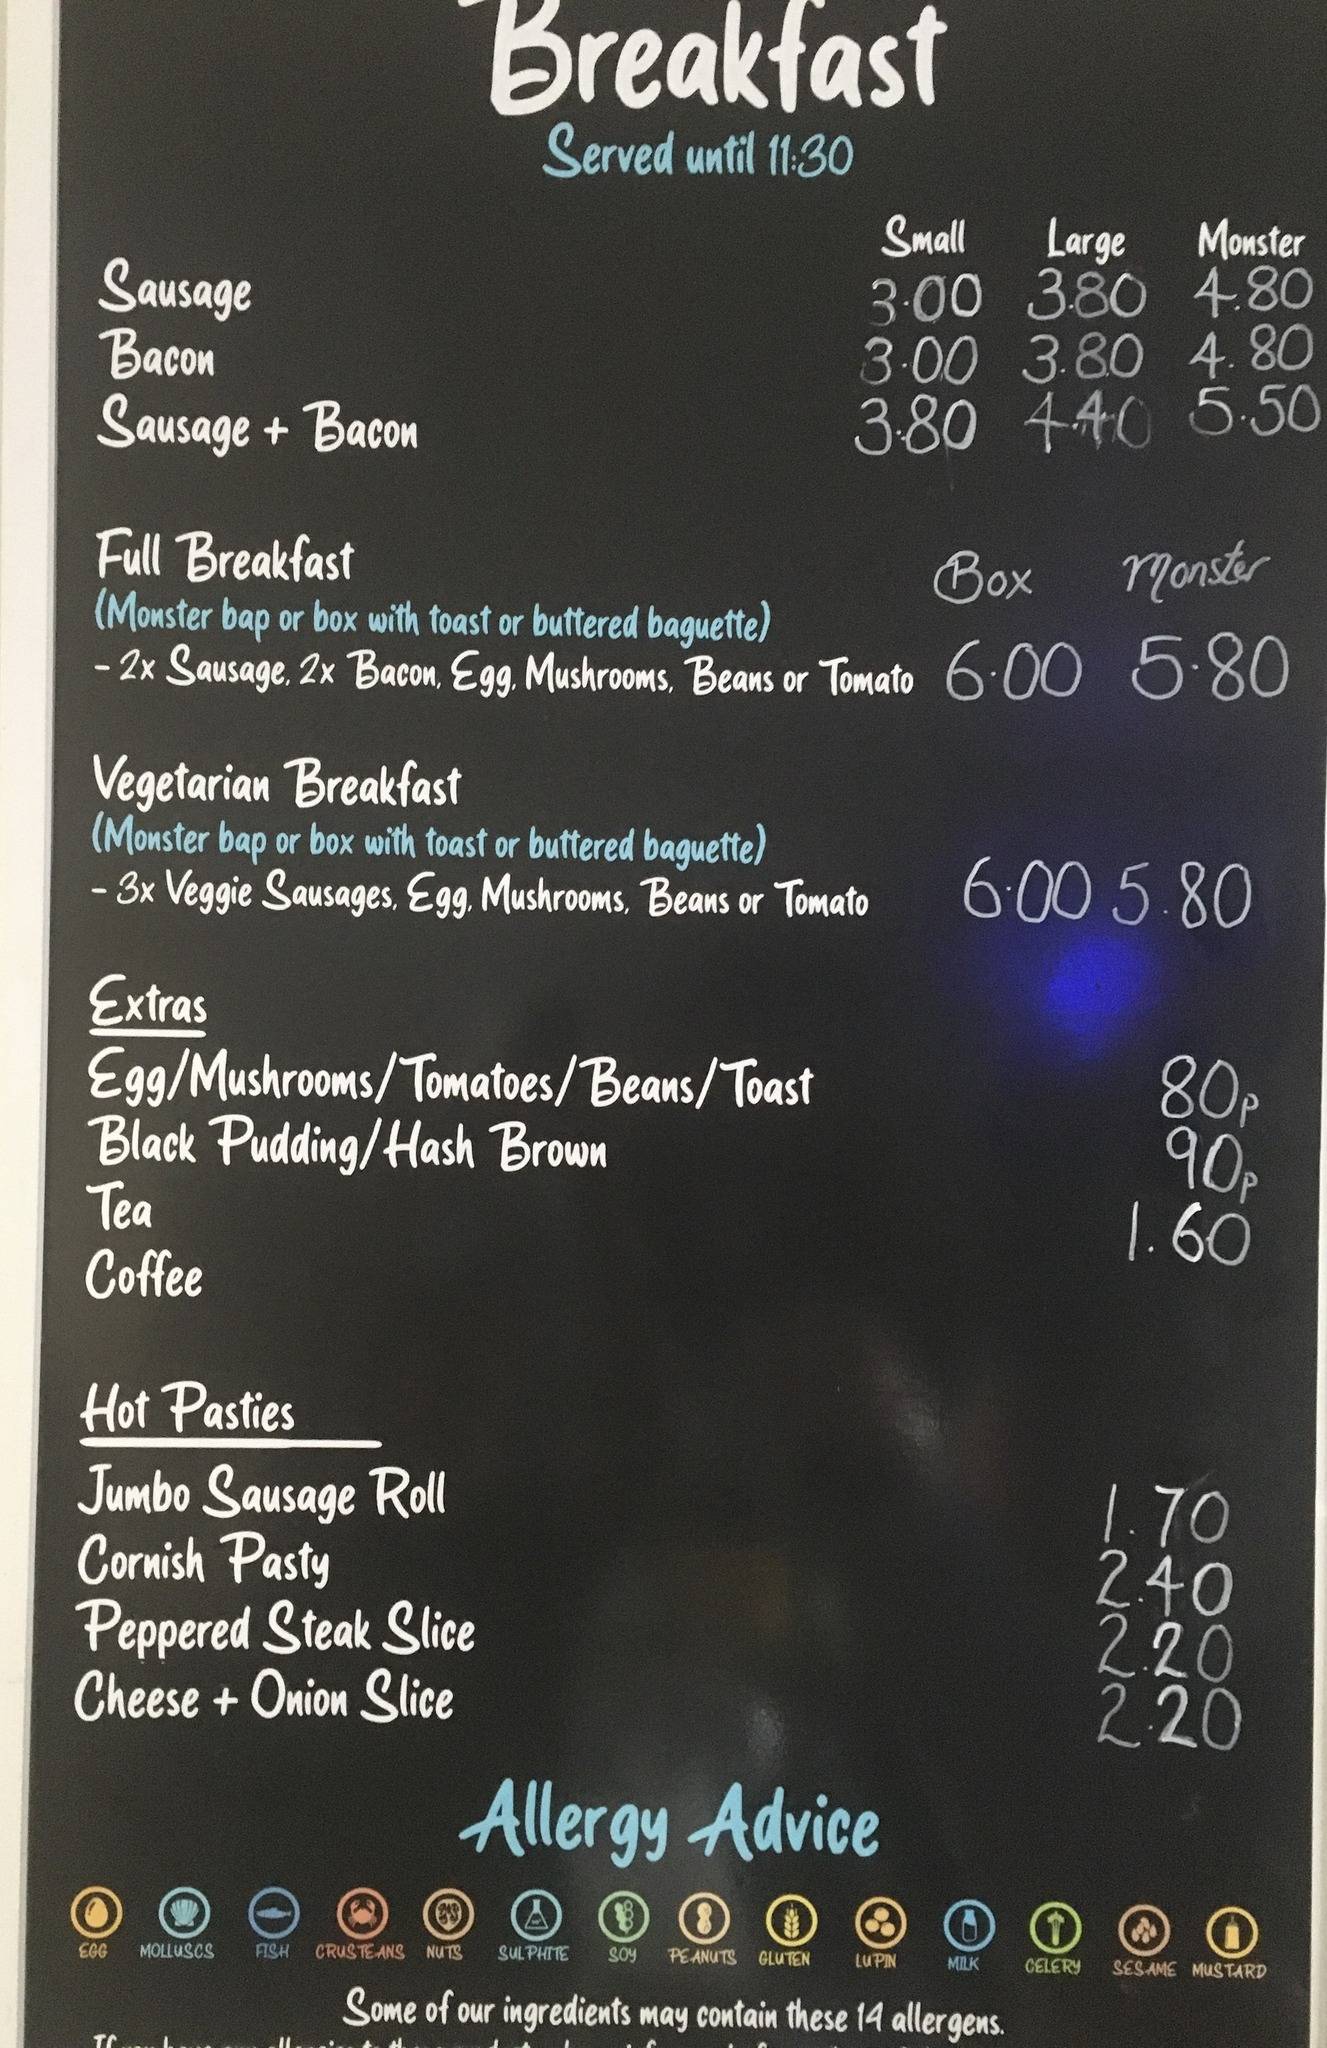 Breakfast
Served until 11:30
Small Large Monster
Sausage 3.00 3.80 4.80
Bacon 3.00 3.80 4.80
Sausage + Bacon 3.80 4.40 5.50
Full Breakfast Box Monster
(Monster bap or box with toast or buttered baguette)
- 2x Sausage, 2x Bacon, Egg, Mushrooms, Beans or Tomato 6.00 5.80
Vegetarian Breakfast
(Monster bap or box with toast or buttered baguette)
- 3x Veggie Sausages, Egg, Mushrooms, Beans or Tomato 6.00 5.80
Extras
Egg/Mushrooms/Tomatoes/Beans/Toast 80p
Black Pudding/Hash Brown 90p
Tea 1.60
Coffee
Hot Pasties
Jumbo Sausage Roll 1.70
Cornish Pasty 2.40
Peppered Steak Slice 2.20
Cheese + Onion Slice 2.20
Allergy Advice
EGG MOLLUSCS FISH CRUSTEANS NUTS SULPHITE SOY PEANUTS GLUTEN LUPIN MILK CELERY SESAME MUSTARD
Some of our ingredients may contain these 14 allergens.